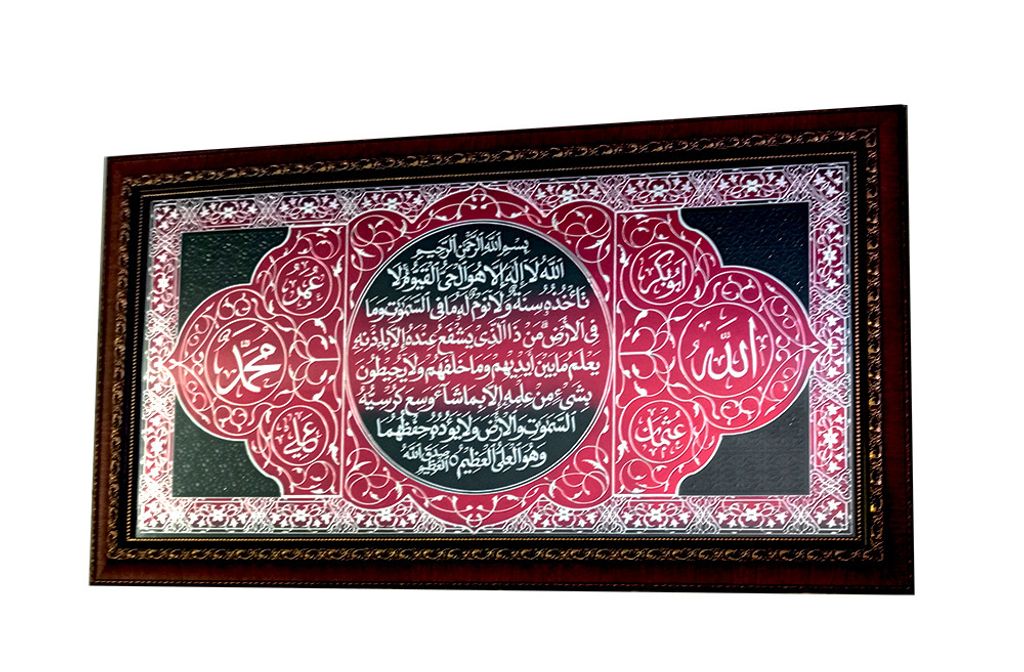 ابوبكر
الله
عثمان
بسم الله الرحمن الرحيم
الله لا إله إلا هو الحي القيوم لا
تأخذه سنة ولا نوم له ما في السموت وما
في الأرض من ذا الذي يشفع عنده إلا بإذنه
يعلم ما بين أيديهم وما خلفهم ولا يحيطون
بشيء من علمه إلا بما شاء وسع كرسيه
السموت والأرض ولا يؤده حفظهما
وهو العلي العظيم صدق الله العظيم
عمر
محمد
علي